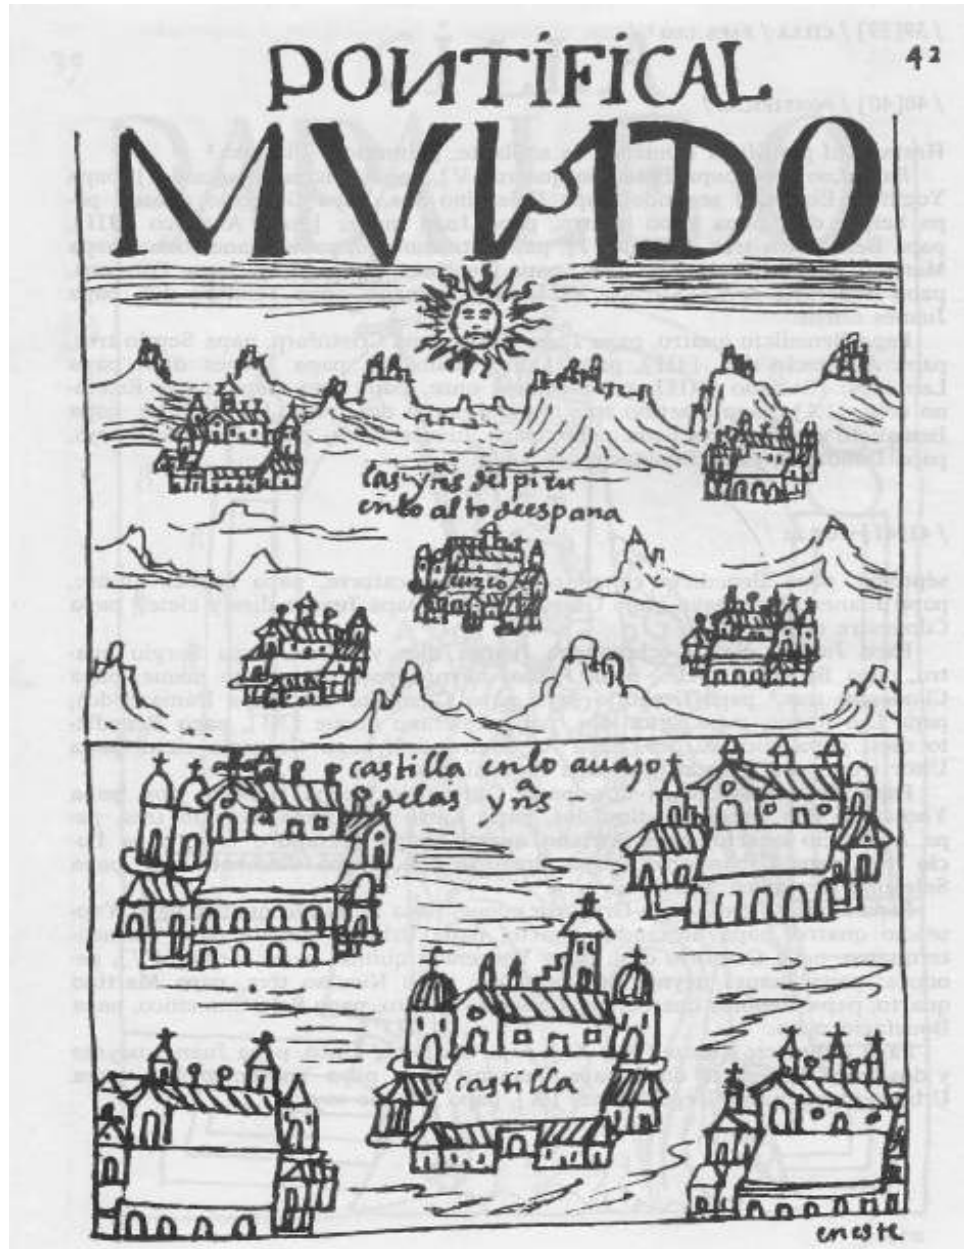 42
PONTIFICAL
MVNDO
las yñs del piru
enlo alto deespana
cuzco
castilla enlo auajo
delas yñs
castilla
eneste